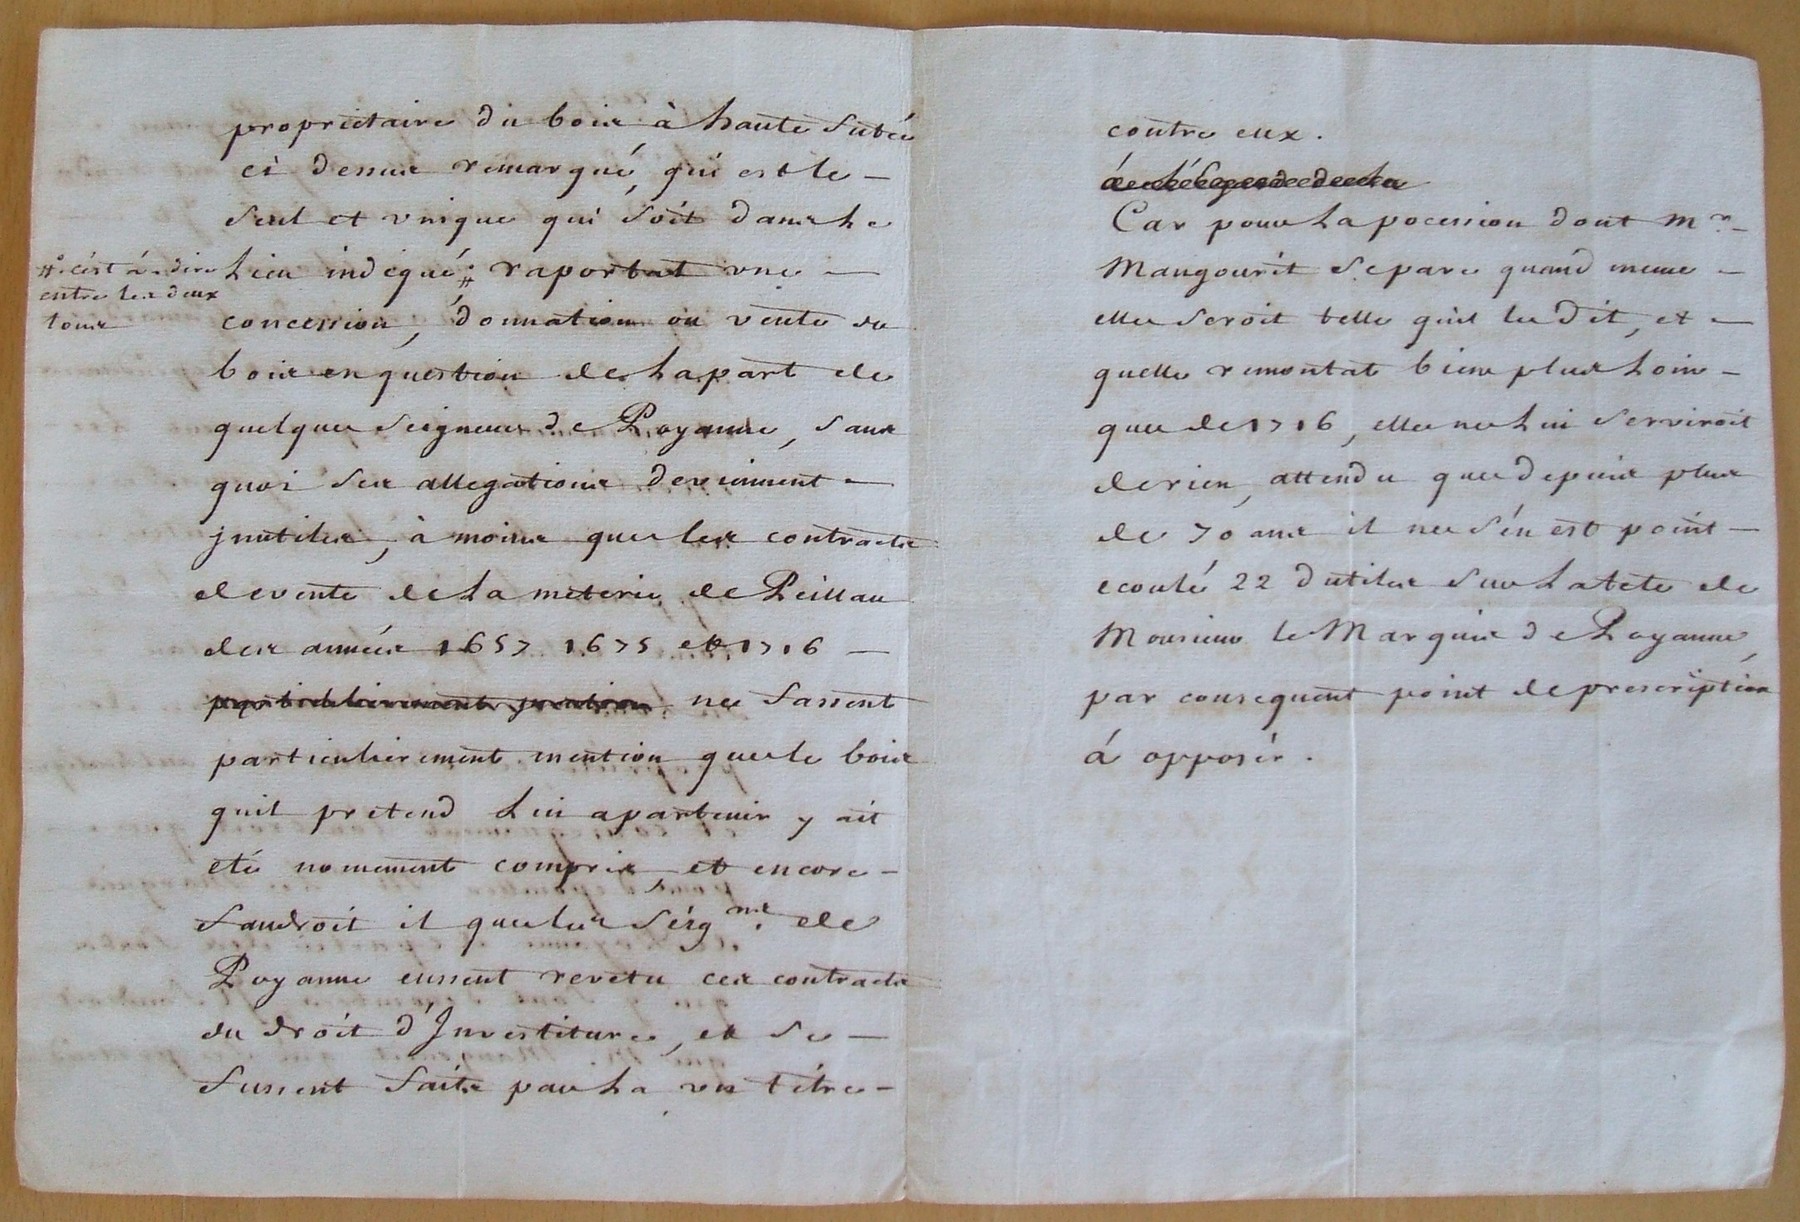 proprietaire du bois à haute futée
ci dessus remarqué, qui est le —
seul et unique qui soit dans le
lieu indiqué ⌗ raportat une —
⌗ c'est á-dire
entre les deux
tours
concession, donnation ou vente du
bois en question de la part de
quelque seigneur de Poyanne, sans
quoi ses allegations deviennent —
jnutiles, à moins que les contracts
de vente de la meterie de Peillau
des années 1657 1675 et 1716 —
particulierement mention ne fassent
particulierement mention que le bois
quil pretend lui apartenir y ait
eté nomement compris et encore —
faudroit il que les seigrs. de
Poyanne eussent revetu ces contracts
du droit d'Jnvestiture, et se —
fussent faits par la un titre —
contre eux.
Car pour la pocession dont Mr. —
Mangourit se pare quand meme —
elle seroit telle quil le dit, et —
quelle remontat bien plus loin —
que de 1716, elle ne lui serviroit
de rien, attendu que depuis plus
de 70 ans il ne s'en est point —
ecoulé 22 d'utiles sur la tete de
Monsieur le Marquis de Poyanne,
par consequent point de prescription
á opposer.